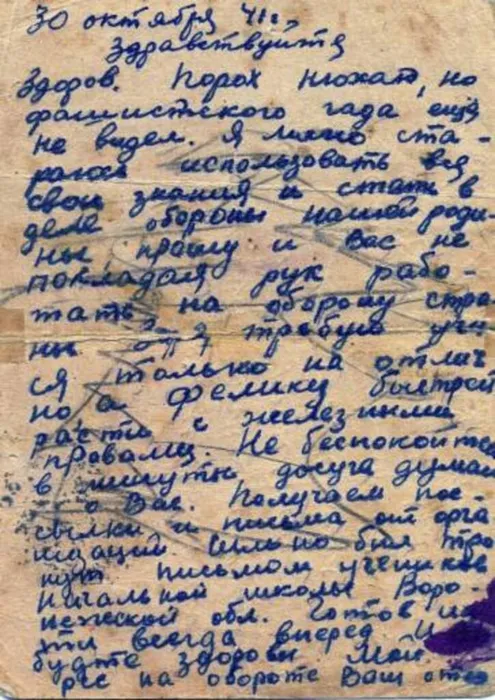 30 октября 41г,
Здравствуйтя
Здоров. Порох нюхат, но
фашистского гада ещё
не видел. Я лично ста-
раюсь использовать все
свои знания и стать в
деле обороны нашей роди-
ны прошу и Вас не
покладая рук рабо-
тать на оборону стра
ны требую учи
ся только на отлич
но а Фелику быстрей
расти с железными
правами. Не беспокойтесь
в минуты досуга думаю
о Вас. Получаем пос-
сылки и письма от орга
низаций Сильно был тро
нут письмом учеников
начальной школы Воро-
нежской обл. Готов ит
ти всегда вперед
будте здоровы Мой
рес на обороте Ваш отец